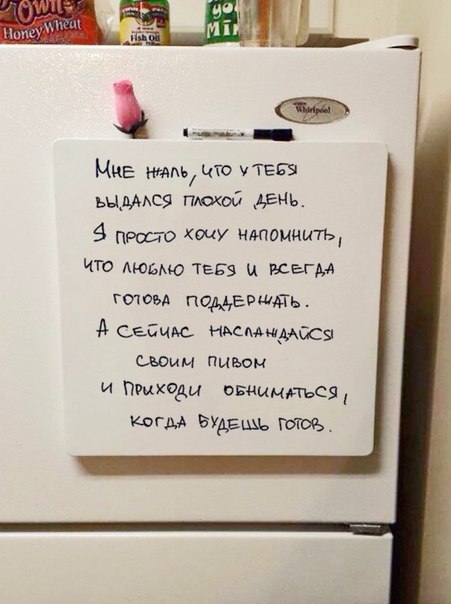 Own's
Honey Wheat
Fish Oil
Whirlpool
Мне жаль, что у тебя
выдался плохой день.
Я просто хочу напомнить,
что люблю тебя и всегда
готова поддержать.
А сейчас наслаждайся
своим пивом
и приходи обниматься,
когда будешь готов.